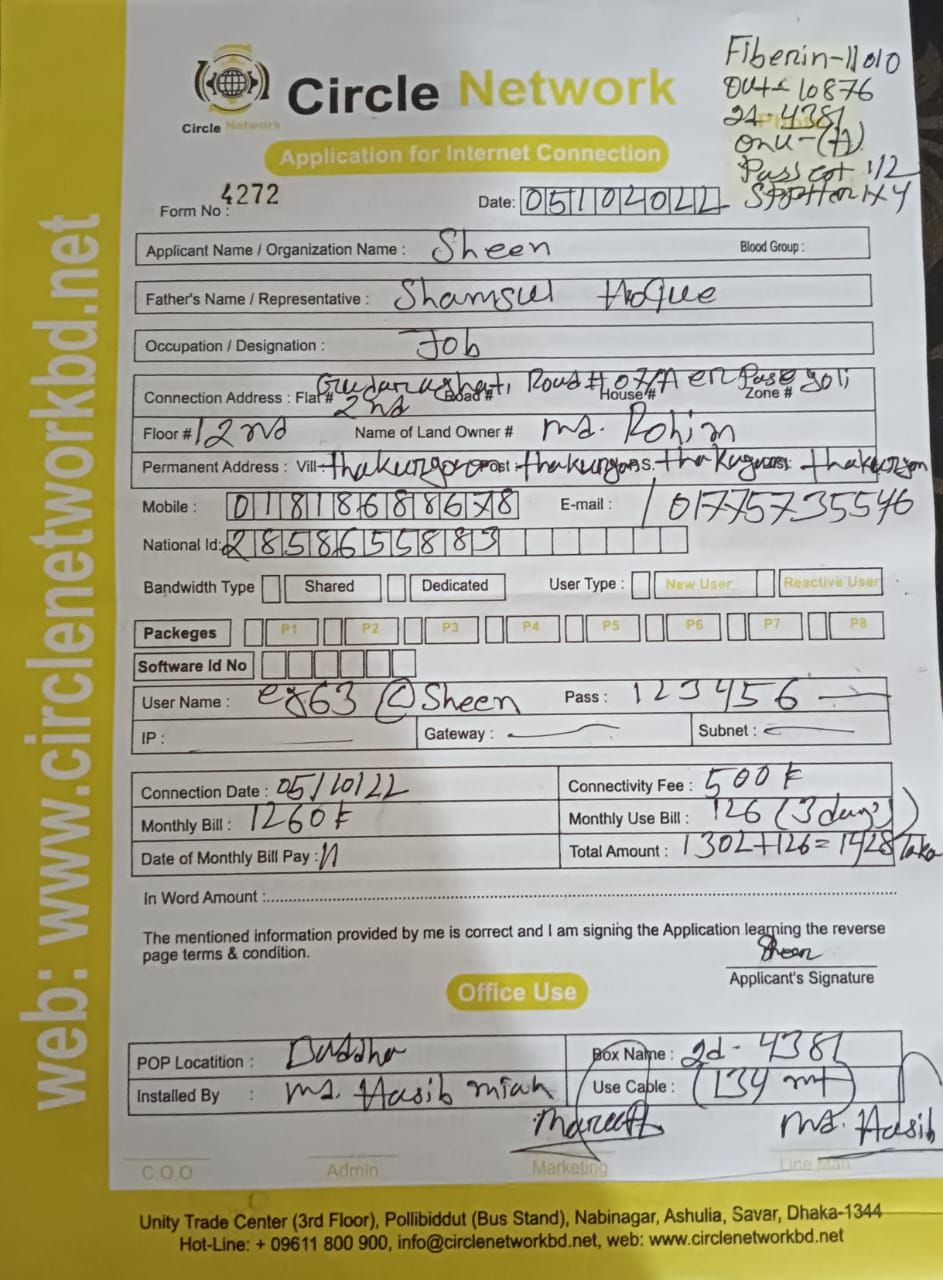 Fiberin-11010
Out- 10876
2d-4381
onu-(A)
Pass cot 1/2
Splitter 1x4
Circle Network
Circle Network
Application for Internet Connection
Form No : 4272
Date: 05/10/2022
Applicant Name / Organization Name : Sheen Blood Group :
Father's Name / Representative : Shamsul Hoque
Occupation / Designation : Job
Connection Address : Flat# 2nd Road # Road # 07/A er Pase goli House # Zone #
Floor # 12nd Name of Land Owner # md. Rohim
Permanent Address : Vill- thakurgaon
Mobile : 01818688678 E-mail : / 01775735546
National Id: 2858655883
Bandwidth Type Shared Dedicated User Type : New User Reactive User
Packeges P1 P2 P3 P4 P5 P6 P7 P8
Software Id No
User Name : eg63 @ Sheen Pass : 123456
IP : Gateway : Subnet :
Connection Date : 05/10/22 Connectivity Fee : 500৳
Monthly Bill : 1260৳ Monthly Use Bill : 126 (3 days)
Date of Monthly Bill Pay : Total Amount : 1302+126= 1428 Taka
In Word Amount :
The mentioned information provided by me is correct and I am signing the Application learning the reverse
page terms & condition.
Sheen
Applicant's Signature
Office Use
POP Locatition : Box Name : 2d- 4381
Installed By : md. Hasib miah Use Cable : (134 mt)
md. Hasib
C.O.O Admin Marketing Line Man
Unity Trade Center (3rd Floor), Pollibiddut (Bus Stand), Nabinagar, Ashulia, Savar, Dhaka-1344
Hot-Line: + 09611 800 900, info@circlenetworkbd.net, web: www.circlenetworkbd.net
web: www.circlenetworkbd.net